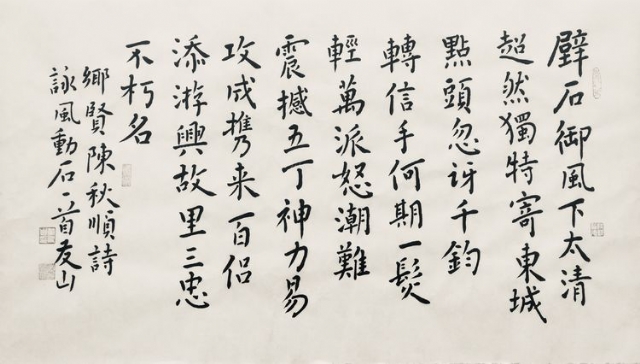 壁石御風下太清
超然獨特寄東城
點頭忽訝千鈞
轉信手何期一髮
輕萬派怒潮難
震撼五丁神力易
攻成携来百侶
添游興故里三忠
不朽名
鄉賢陳秋順詩
詠風動石一首友山